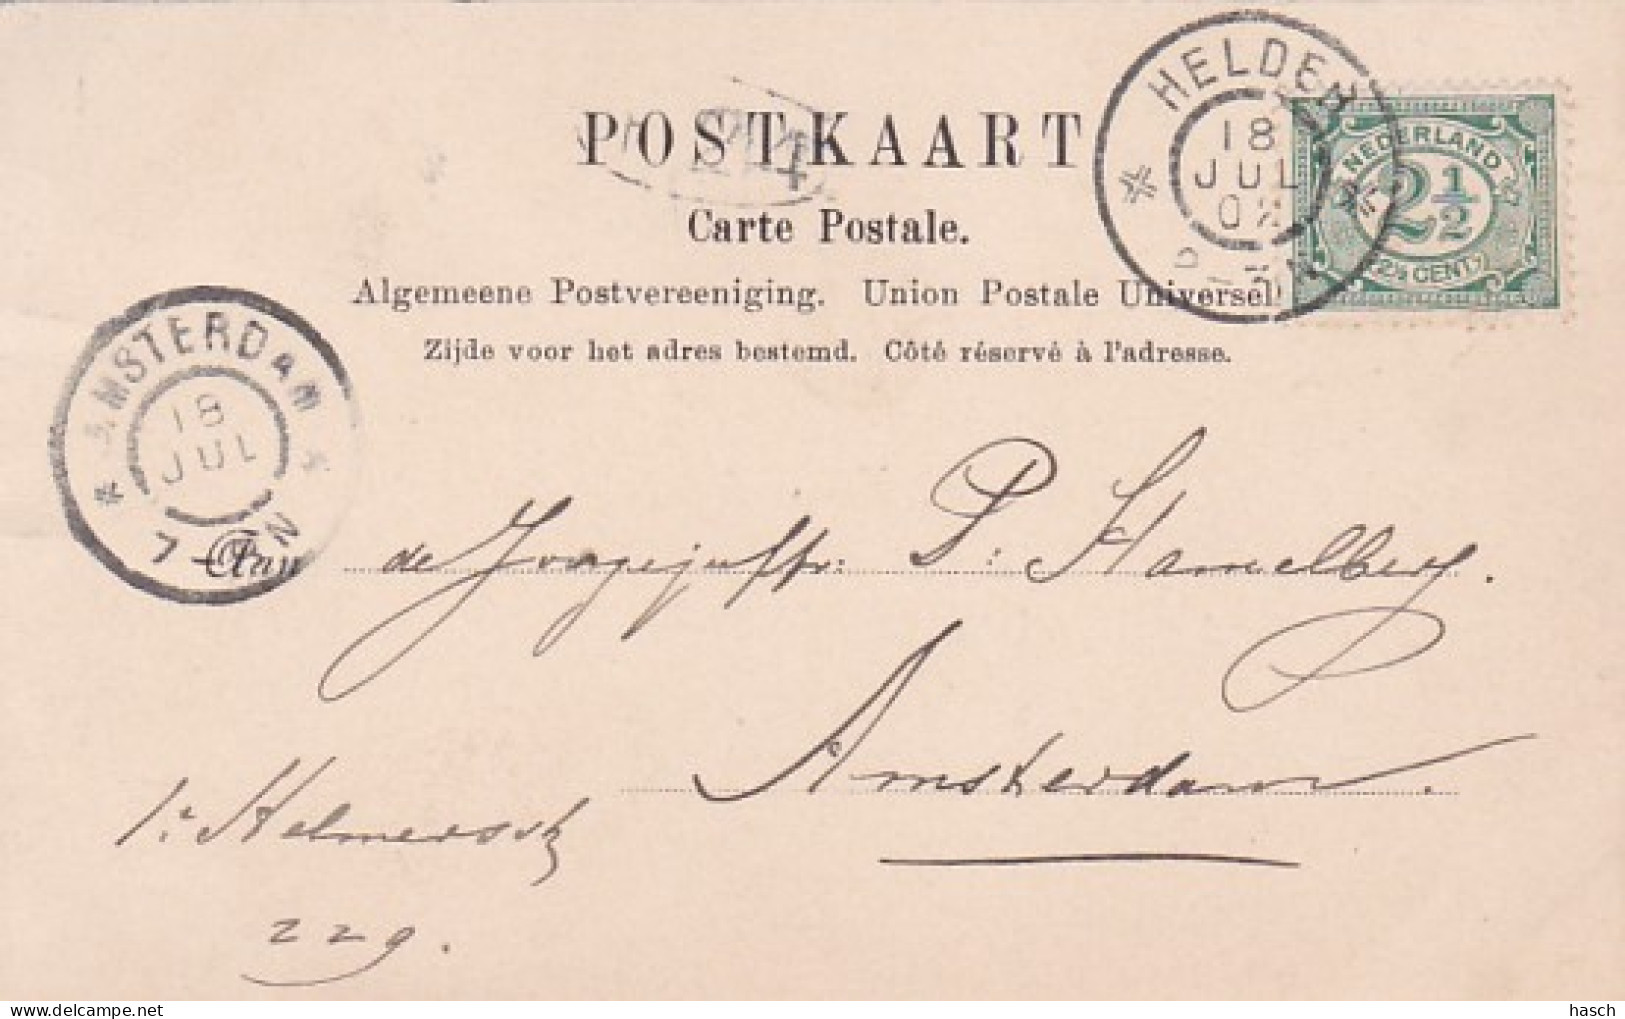 POSTKAART
Carte Postale.
Algemeene Postvereeniging. Union Postale Universel
Zijde voor het adres bestemd. Côté réservé à l'adresse.
HELDER
18
JUL
02
NEDERLAND
2½
2½ CENT
AMSTERDAM
18
JUL
7 N
Aan de Jongejuffr: P: Hamelberg.
Amsterdam.
1e Helmersstr
229.
hasch